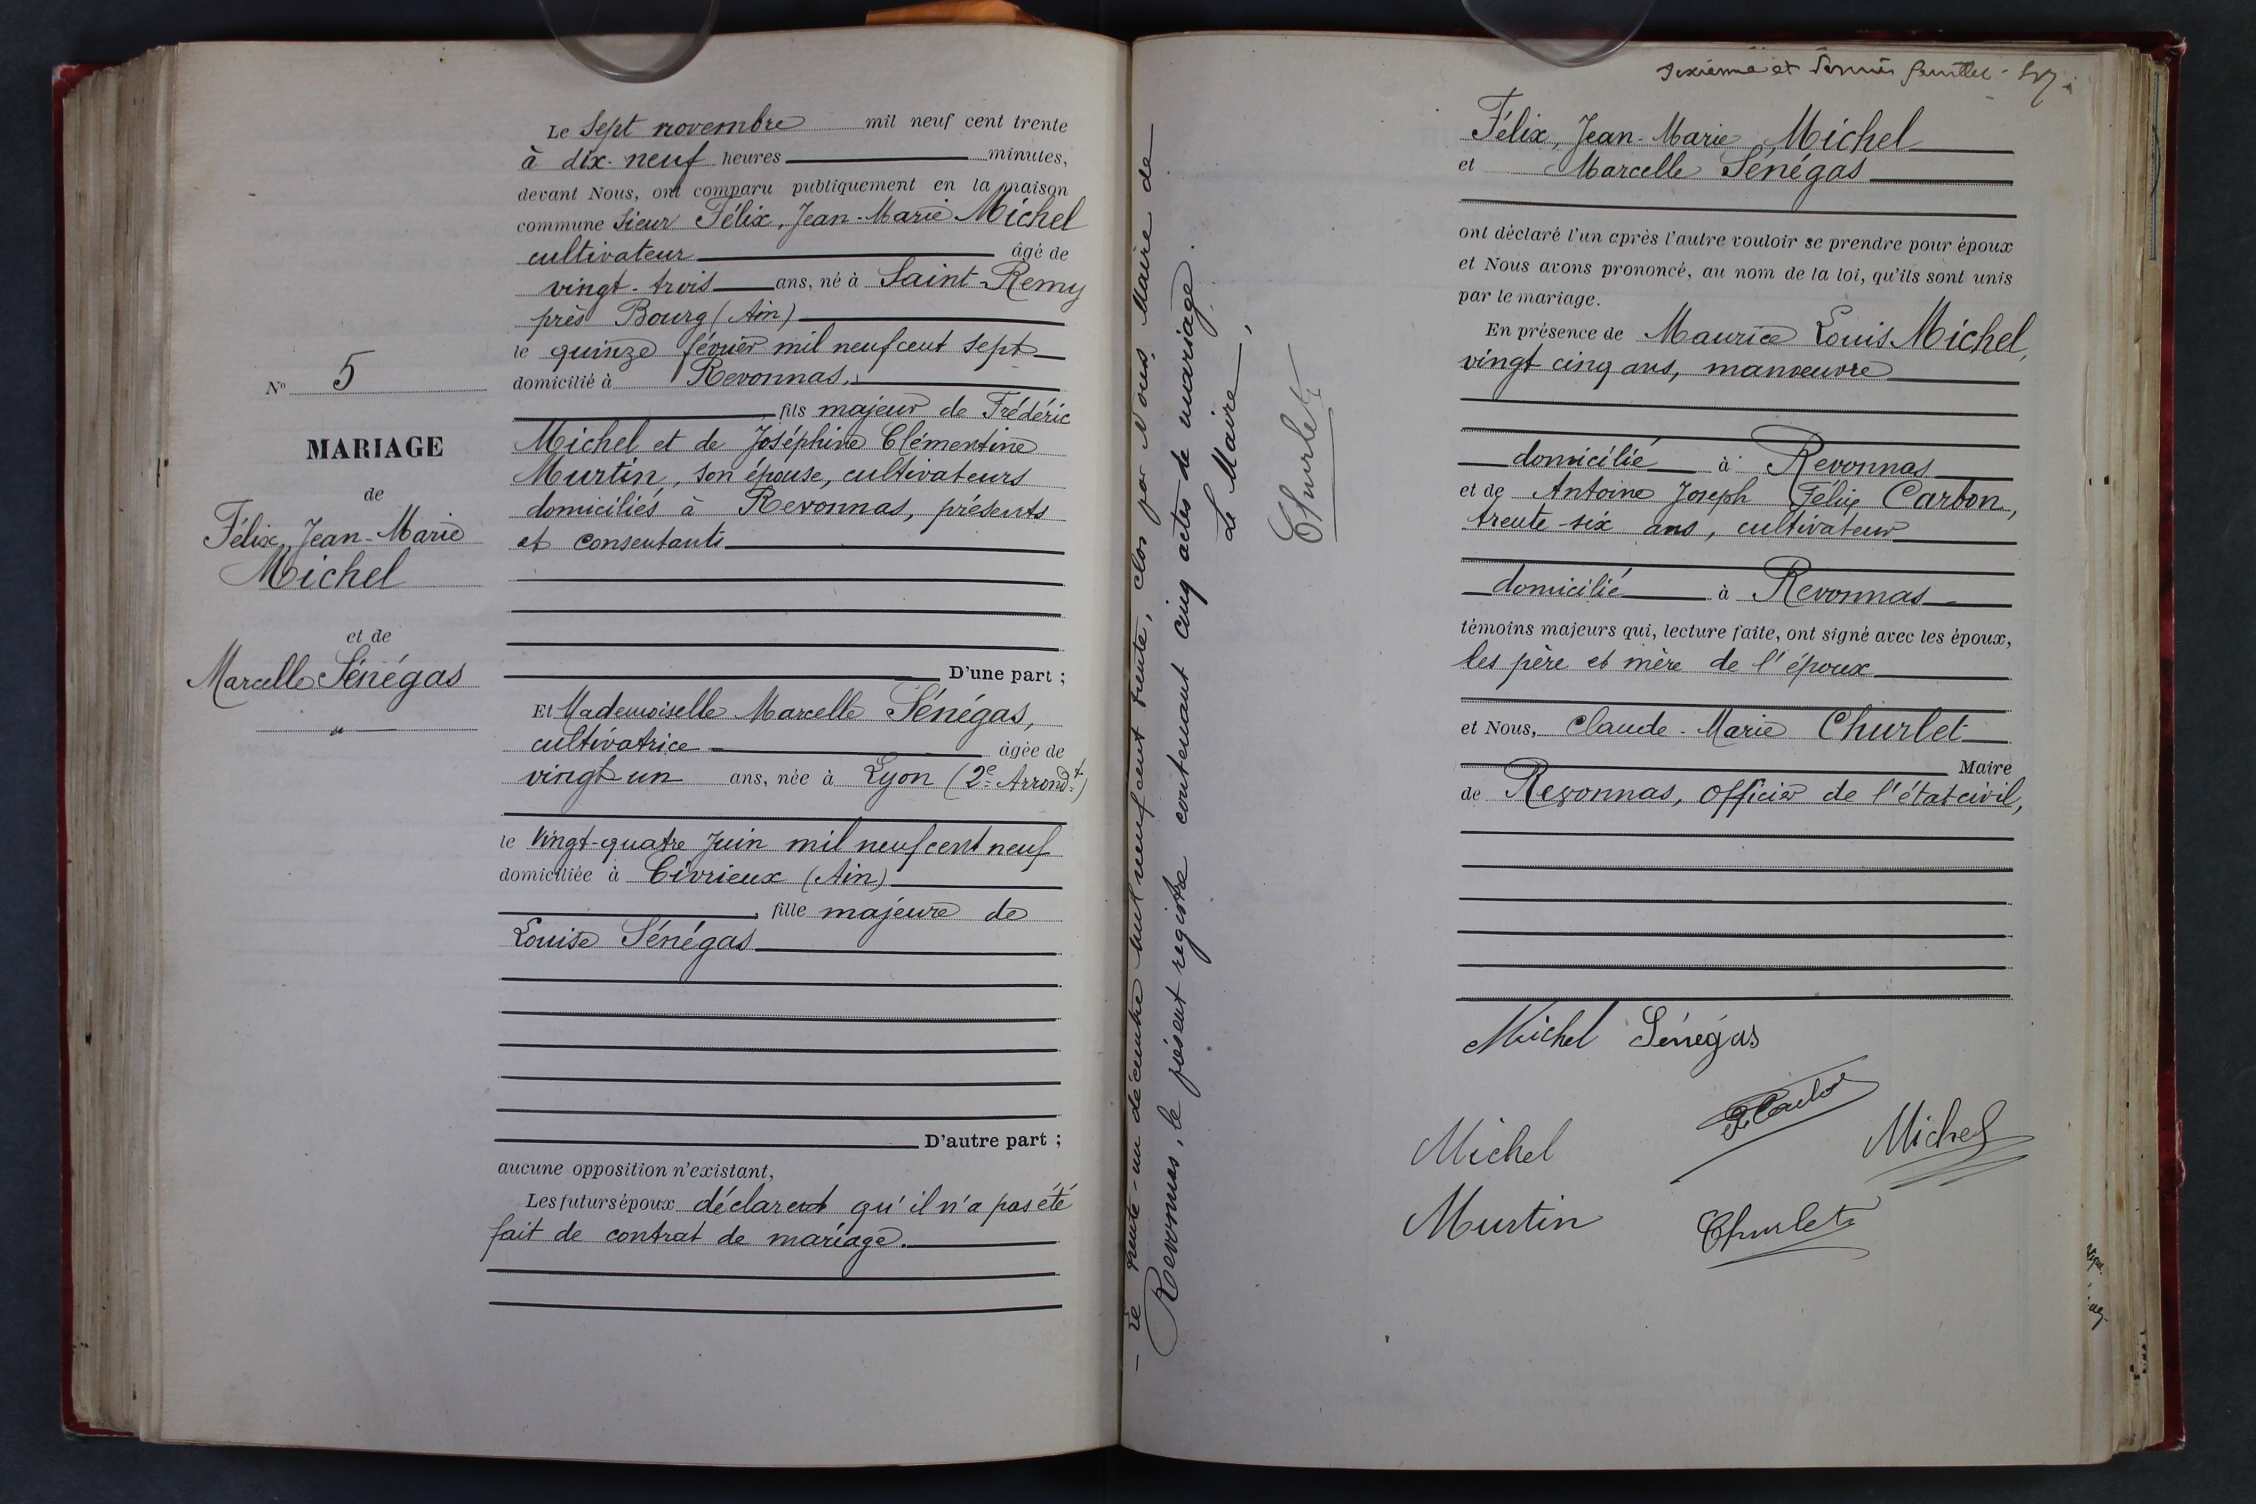 Le Sept novembre mil neuf cent trente
à dix-neuf heures minutes,
devant Nous, ont comparu publiquement en la maison
commune Sieur Félix, Jean-Marie Michel
cultivateur âgé de
vingt-trois ans, né à Saint-Remy
près Bourg (Ain)
le quinze février mil neuf cent sept
domicilié à Revonnas,
fils majeur de Frédéric
Michel et de Joséphine Clémentine
Murtin, son épouse, cultivateurs
domiciliés à Revonnas, présents
et consentants
D'une part ;
Et Mademoiselle Marcelle Sénégas,
cultivatrice âgée de
vingt un ans, née à Lyon (2e Arrondt)
le vingt-quatre juin mil neuf cent neuf
domiciliée à Civrieux (Ain)
, fille majeure de
Louise Sénégas
D'autre part ;
aucune opposition n'existant,
Les futurs époux déclarent qu'il n'a pas été
fait de contrat de mariage.
N° 5
MARIAGE
de
Félix, Jean-Marie
Michel
et de
Marcelle Sénégas
trente-un décembre mil neuf cent trente, clos par Nous, Maire de
Revonnas, le présent registre contenant cinq actes de mariage.
Le Maire,
Churlet
Sixième et dernier feuillet
Félix, Jean-Marie Michel
et Marcelle Sénégas
ont déclaré l'un après l'autre vouloir se prendre pour époux
et Nous avons prononcé, au nom de la loi, qu'ils sont unis
par le mariage.
En présence de Maurice Louis Michel,
vingt cinq ans, manœuvre
domicilié à Revonnas
et de Antoine Joseph Félix Carbon,
trente-six ans, cultivateur
domicilié à Revonnas
témoins majeurs qui, lecture faite, ont signé avec les époux,
les père et mère de l'époux
et Nous, Claude-Marie Churlet
Maire
de Revonnas, officier de l'état civil,
Michel Sénégas
Michel Michel
Murtin Churlet